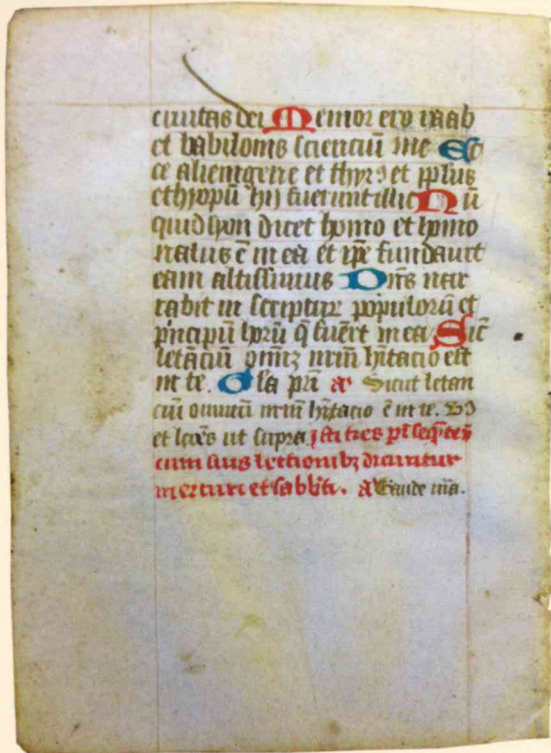 ciuitas dei Memor ero raab
et babilonis scienciū me Ec
ce alienigene et thyrꝰ et pplus
ethyopū hij fuerunt illic Nū
quid syon dicet homo et homo
natus ē in ea et ip̄e fundauit
eam altissimus Dn̄s nar
rabit in scripturꝭ populorū et
pncipū horū q̄ fuer̄t in ea Sic̄
letāciū omīz nrm̄ hītacio est
in te. Gła pri a Sicut letan
ciū omniū nrm̄ hītacio ē in te.
et lcōes ut supra Isti tres ps̄ seqn̄tes
cum suis lectionibꝫ dicuntur
mercurii et sabbti. A Gaude ma.